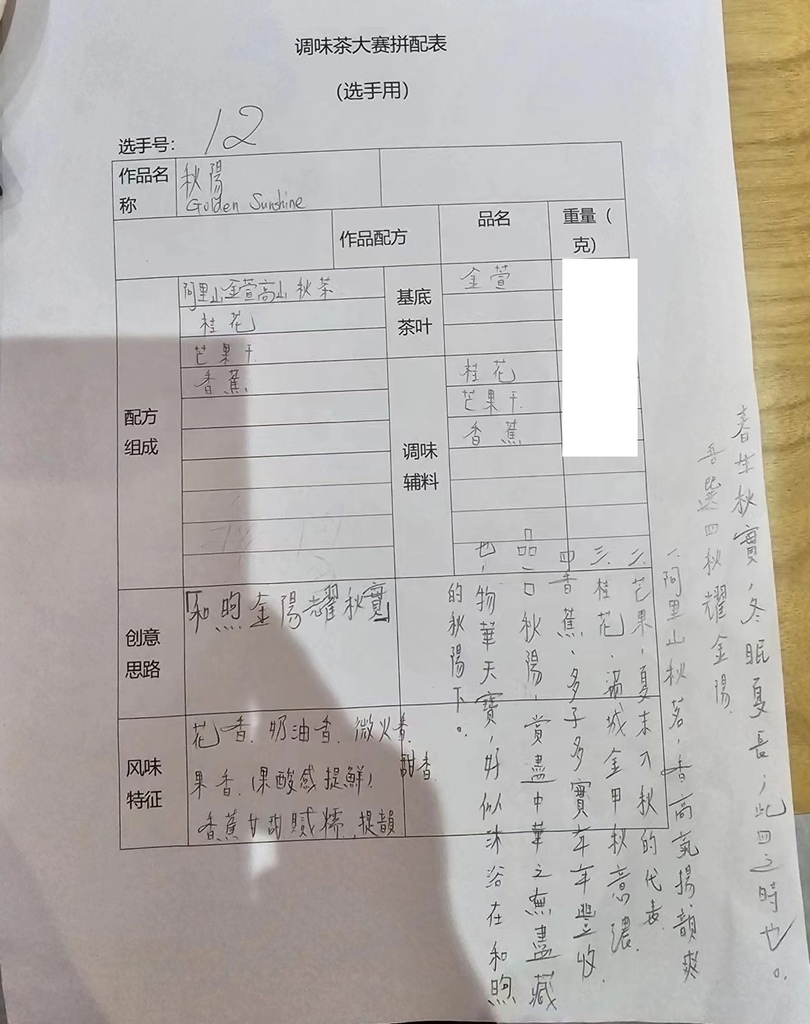 调味茶大赛拼配表
(选手用)
选手号: 12
作品名称
秋陽
Golden Sunshine
作品配方
品名
重量(克)
配方组成
阿里山金萱高山秋茶
桂花
芒果干
香蕉
基底茶叶
金萱
调味辅料
桂花
芒果干
香蕉
创意思路
「和煦金陽耀秋實」
风味特征
花香、奶油香、微火香、甜香
果香、(果酸感提鮮)
香蕉甘甜賦糯、提韻
春生秋實,冬眠夏長,此四之時也。
吾選四秋耀金陽
一、阿里山秋茗,香高氣揚韻爽
二、芒果,夏末入秋的代表
三、桂花、滿城金甲秋意濃
四香蕉、多子多實年年豐收
品一口秋陽,賞盡中華之無盡藏
也,物華天寶,好似沐浴在和煦
的秋陽下。